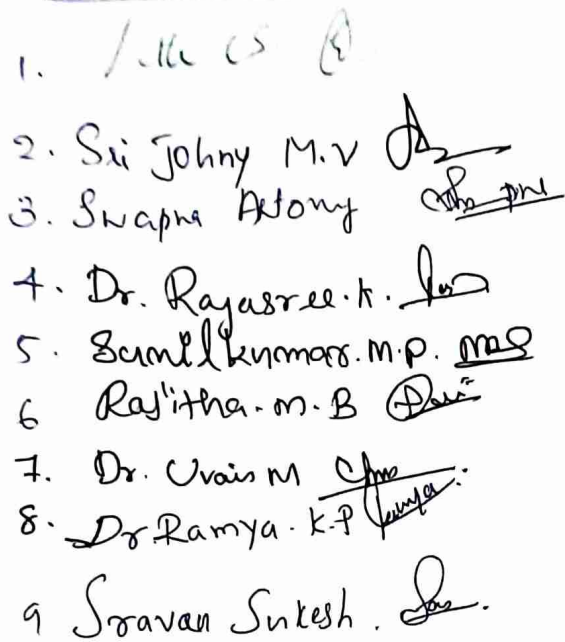 1.
2. Sri Johny M.V
3. Swapna Antony
4. Dr. Rajasree.K.
5. Sunilkumar.M.P.
6 Rajitha.M.B
7. Dr. Uvais M
8. Dr Ramya.K.P
9 Sravan Sukesh.